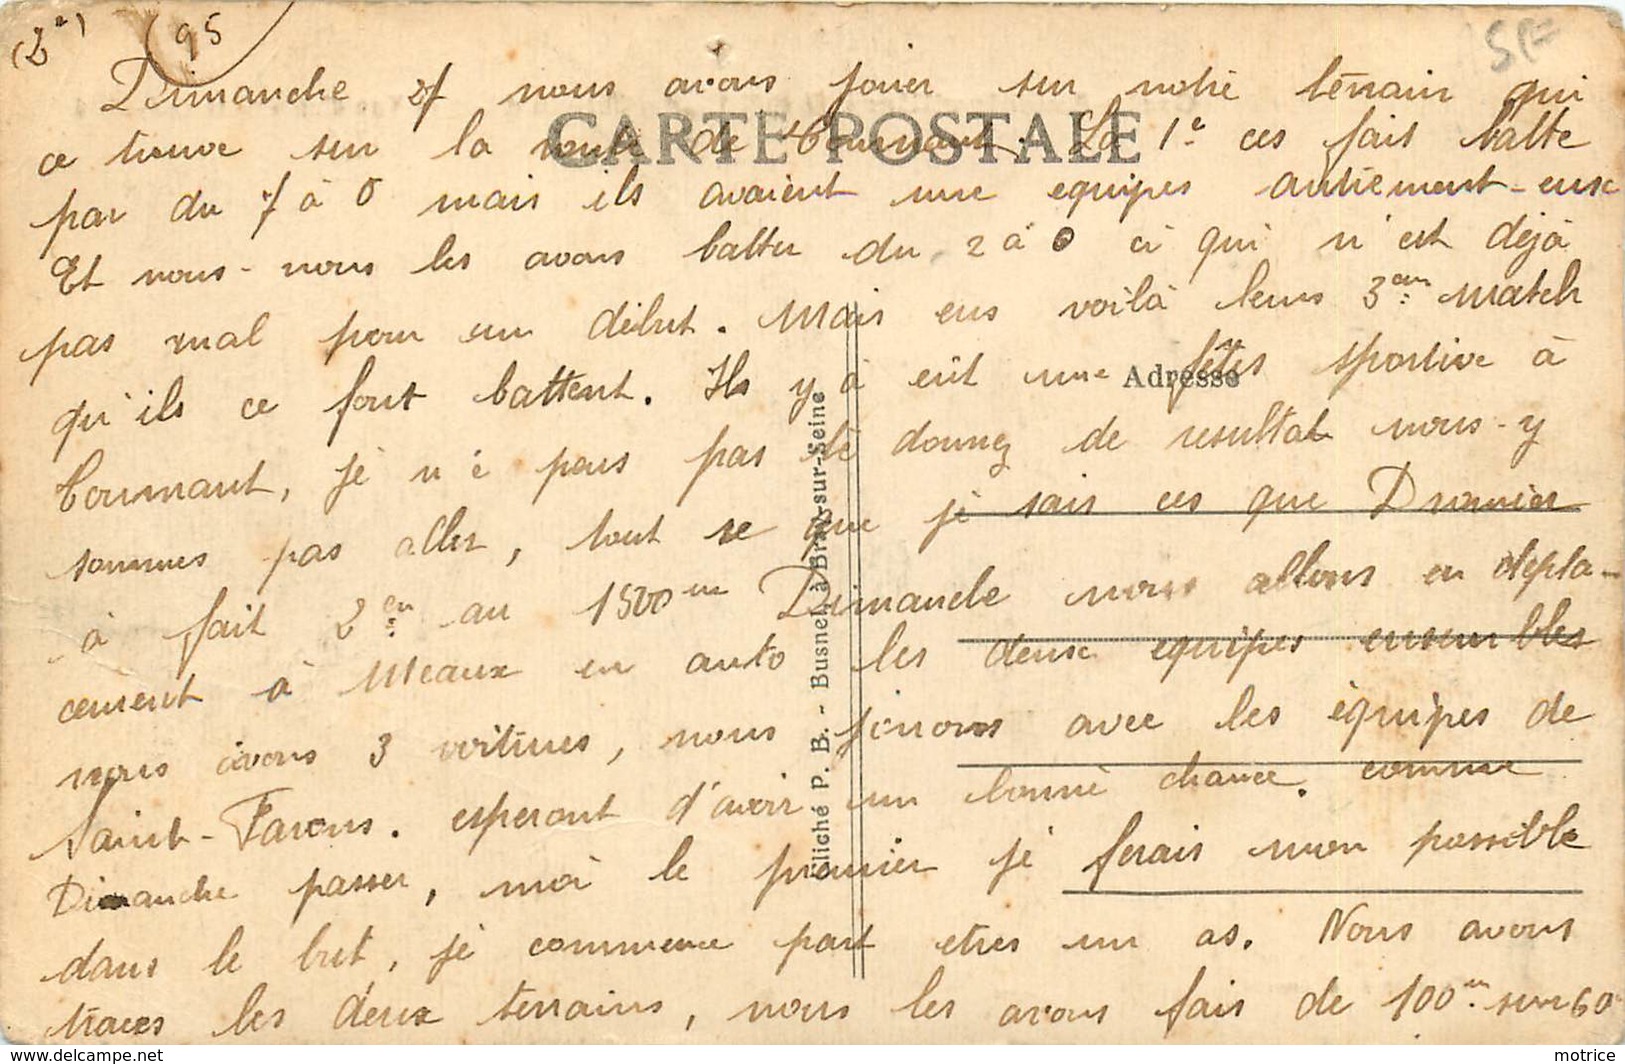 (2e) 95 SPF
CARTE POSTALE
Adresse
Cliché P. B. - Busnel, à Bray-sur-Seine
Dimanche 27 nous avons jouer sur notre terrain qui
ce trouve sur la route de Tournant. La 1e ces fait batte
par du 7 à 0 mais ils avaient une equipes autrement-eux
Et nous-nous les avons battu du 2 à 0 ci qui n'est déjà
pas mal pour un début. Mais eus voilà leurs 3em match
qu'ils ce font battent. Ils y à eût une fêtes sportive à
Tournant, je n'é peus pas té donnez de resultat nous-y
sommes pas aller, tout se que je sais ces que
à fait 2em au 1500m Dimanche nous allons en depla-
cement à Meaux en auto les deux equipes ensembles
nous avons 3 voitures, nous jouons avec les équipes de
Saint-Farons. esperont d'avoir un bonne chance. comme
Dimanche passer, moi le premier je ferais mon possible
dans le but, je commence part etres un as. Nous avons
traces les deux terrains, nous les avons fais de 100m sur 60
motrice